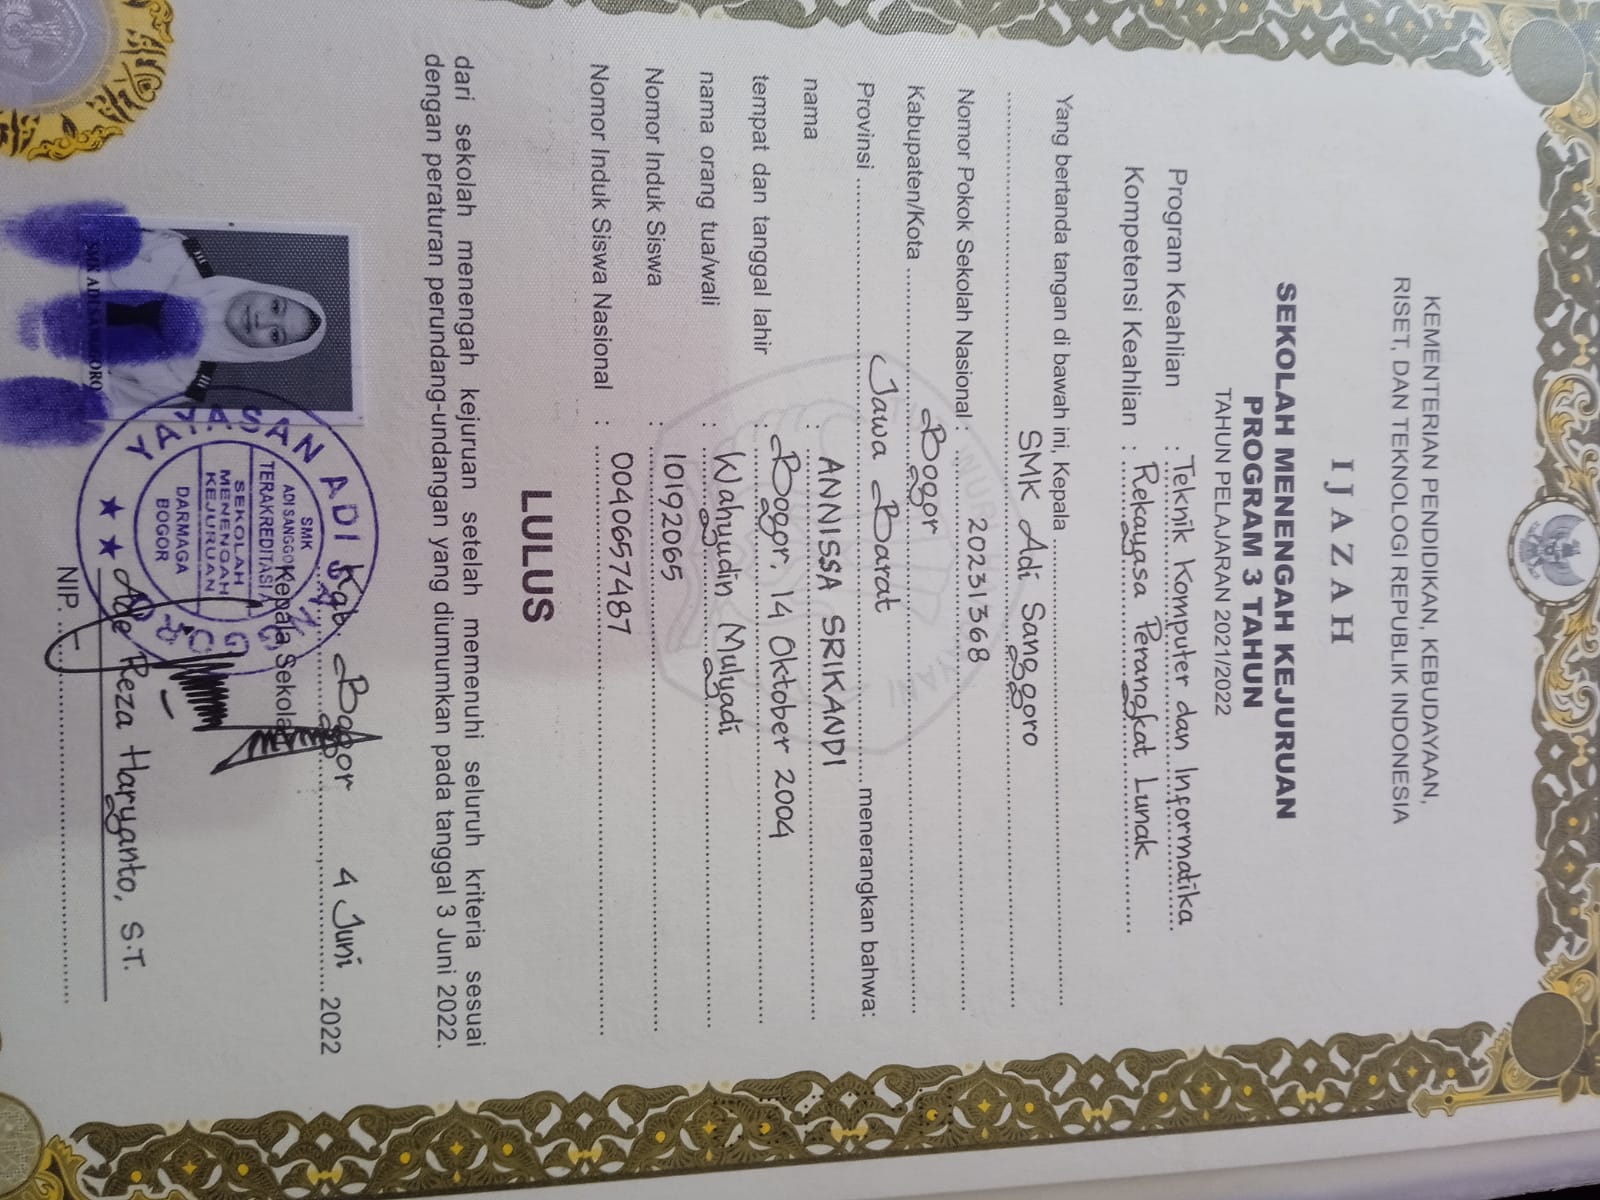 KEMENTERIAN PENDIDIKAN, KEBUDAYAAN,
RISET, DAN TEKNOLOGI REPUBLIK INDONESIA
IJAZAH
SEKOLAH MENENGAH KEJURUAN
PROGRAM 3 TAHUN
TAHUN PELAJARAN 2021/2022
Program Keahlian : Teknik Komputer dan Informatika
Kompetensi Keahlian : Rekayasa Perangkat Lunak
Yang bertanda tangan di bawah ini, Kepala
SMK Adi Sanggoro
Nomor Pokok Sekolah Nasional 20231368
Kabupaten/Kota Bogor
Provinsi Jawa Barat menerangkan bahwa:
nama : ANNISSA SRIKANDI
tempat dan tanggal lahir : Bogor, 14 Oktober 2004
nama orang tua/wali : Wahyudin Mulyadi
Nomor Induk Siswa : 10192065
Nomor Induk Siswa Nasional : 0040657487
LULUS
dari sekolah menengah kejuruan setelah memenuhi seluruh kriteria sesuai
dengan peraturan perundang-undangan yang diumumkan pada tanggal 3 Juni 2022.
Kab. Bogor, 4 Juni 2022
Kepala Sekolah
YAYASAN ADI
SMK
ADI SANGGORO
TERAKREDITASI A
SEKOLAH
MENENGAH
KEJURUAN
DARMAGA
BOGOR
Ade Reza Haryanto, S.T.
NIP.